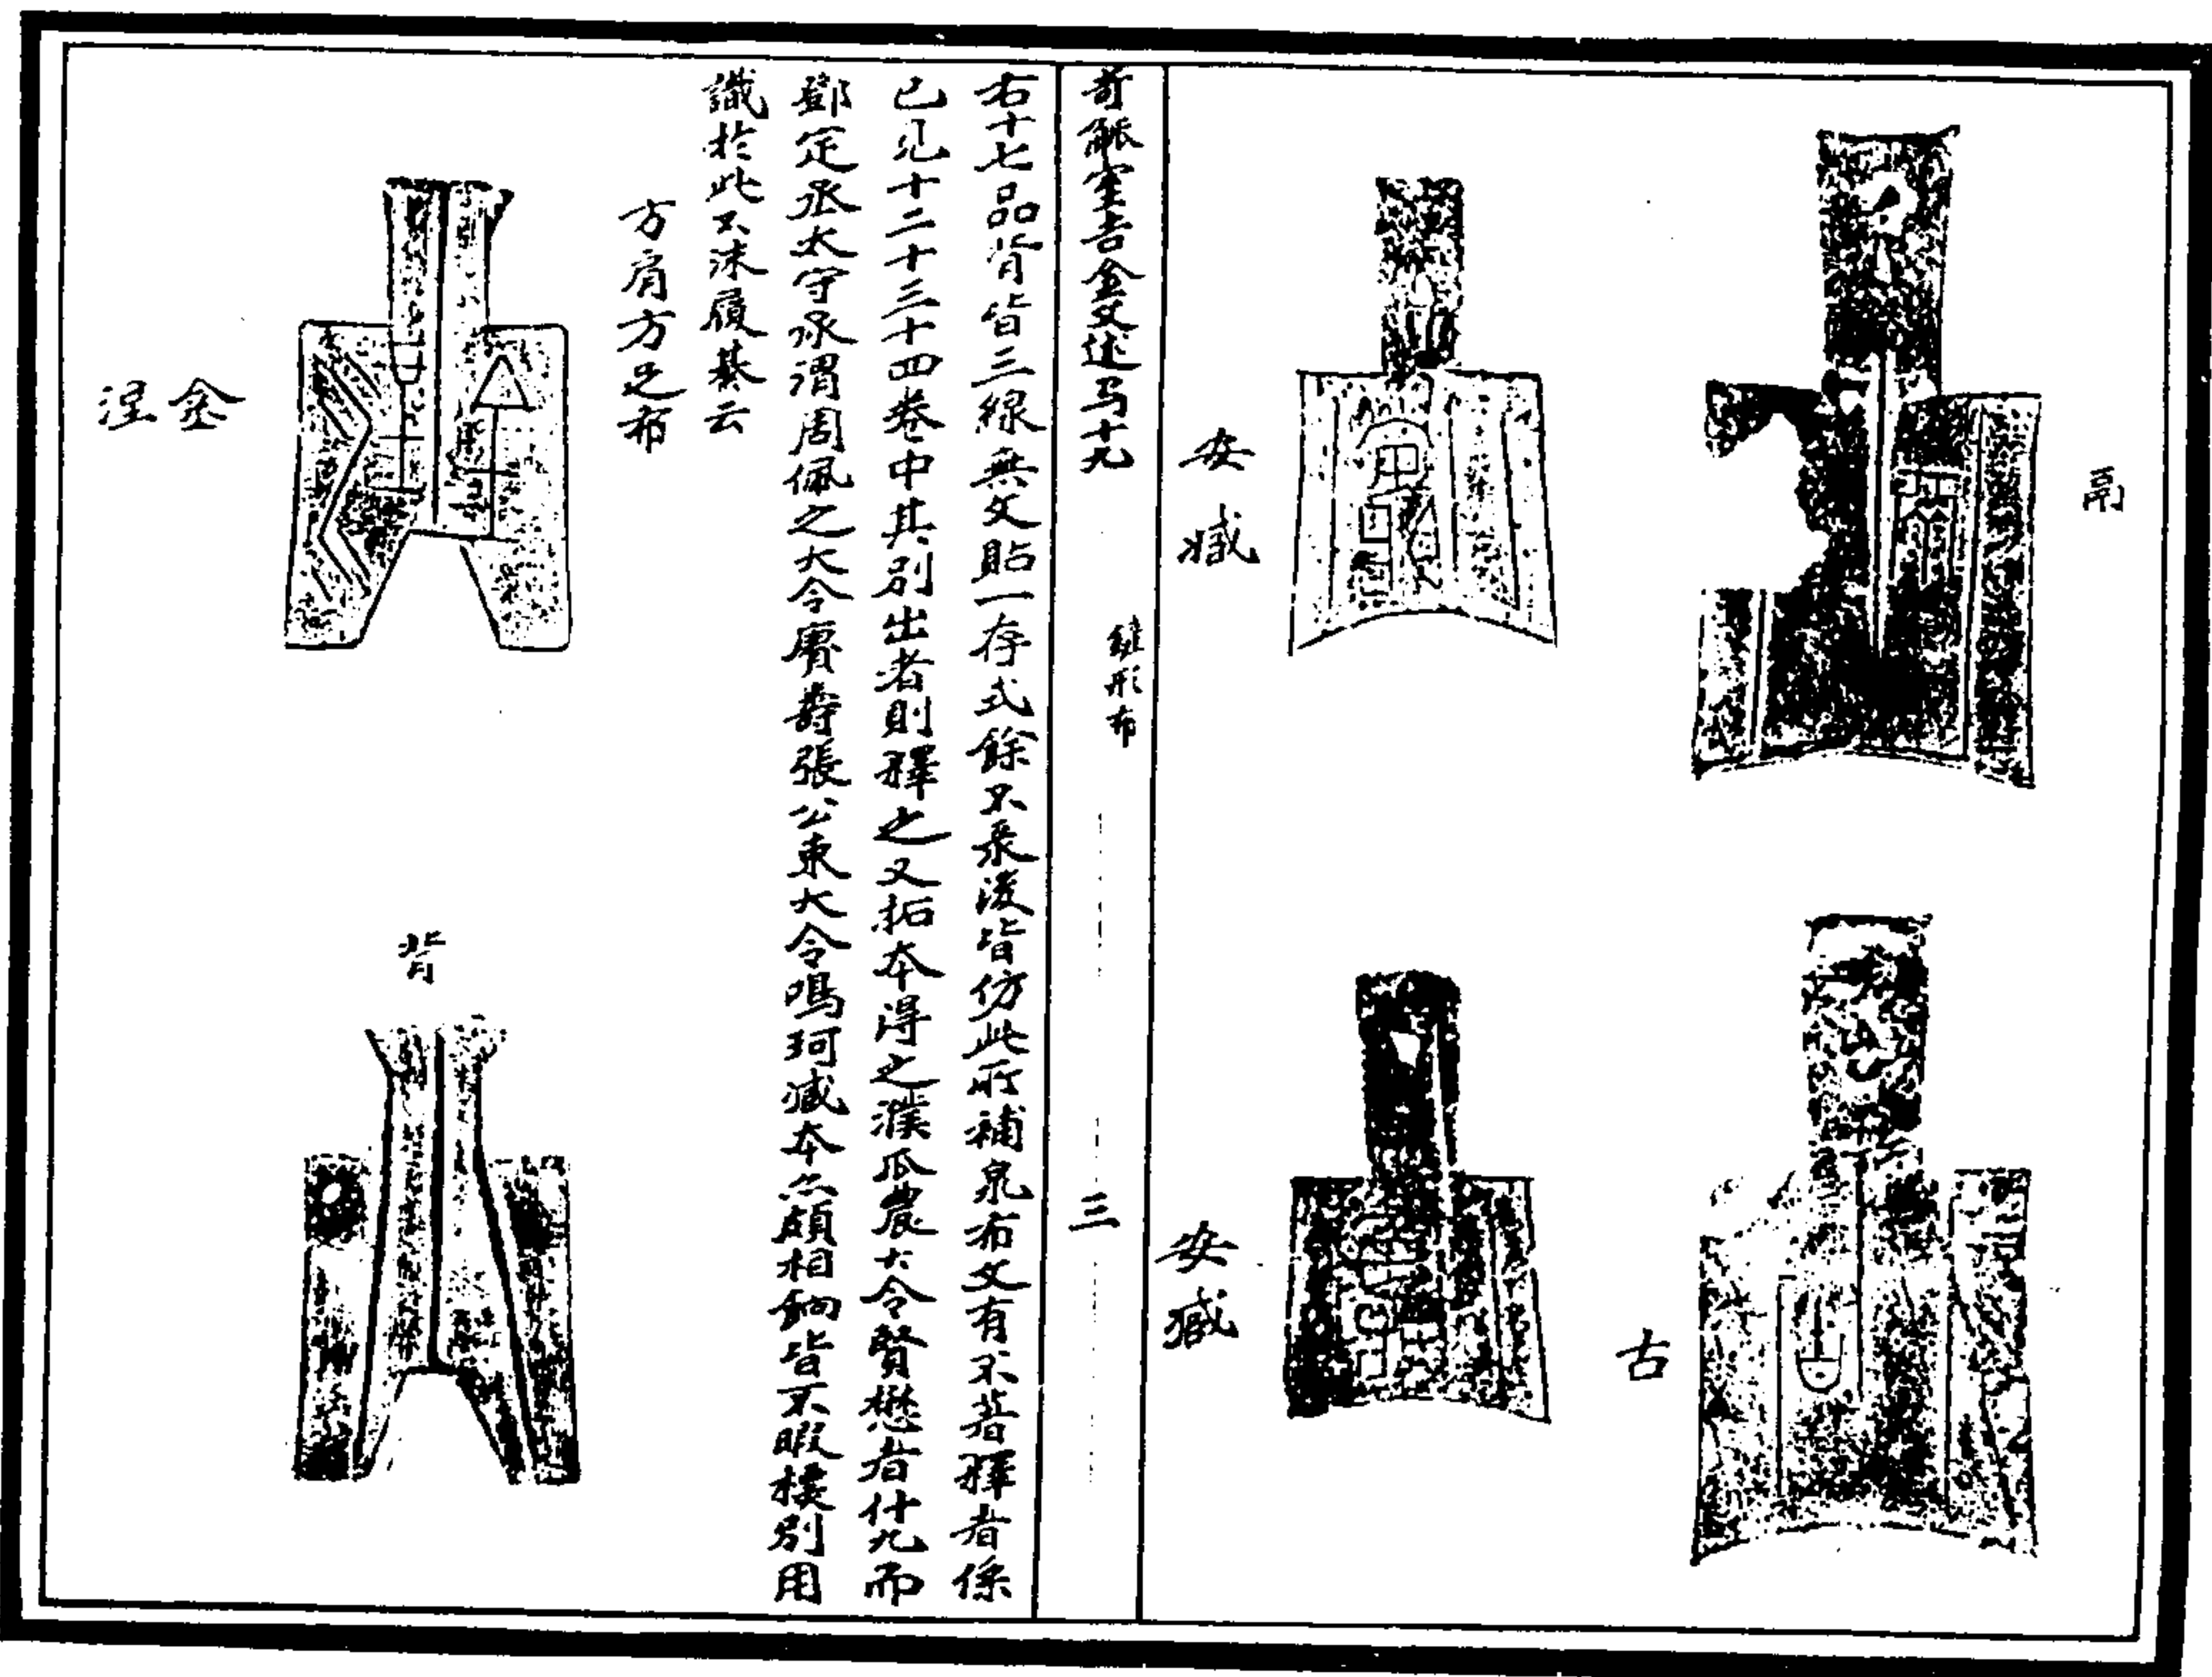 鬲
古
安
臧
安
臧
奇觚室吉金文述 卷十九
鏟形布
三
右十七品背皆三線無文貼一存式餘不录後皆仿此所補泉布文有不著釋者係
已見十二十三十四卷中其別出者則釋之又拓本得之濮瓜農大令賢懋者什九而
鄧定丞太守承渭周佩之大令賡壽張公束大令鳴珂臧本亦頗相餉皆不暇樸別用
識於此不沫履綦云
方肩方足布
金
涅
背